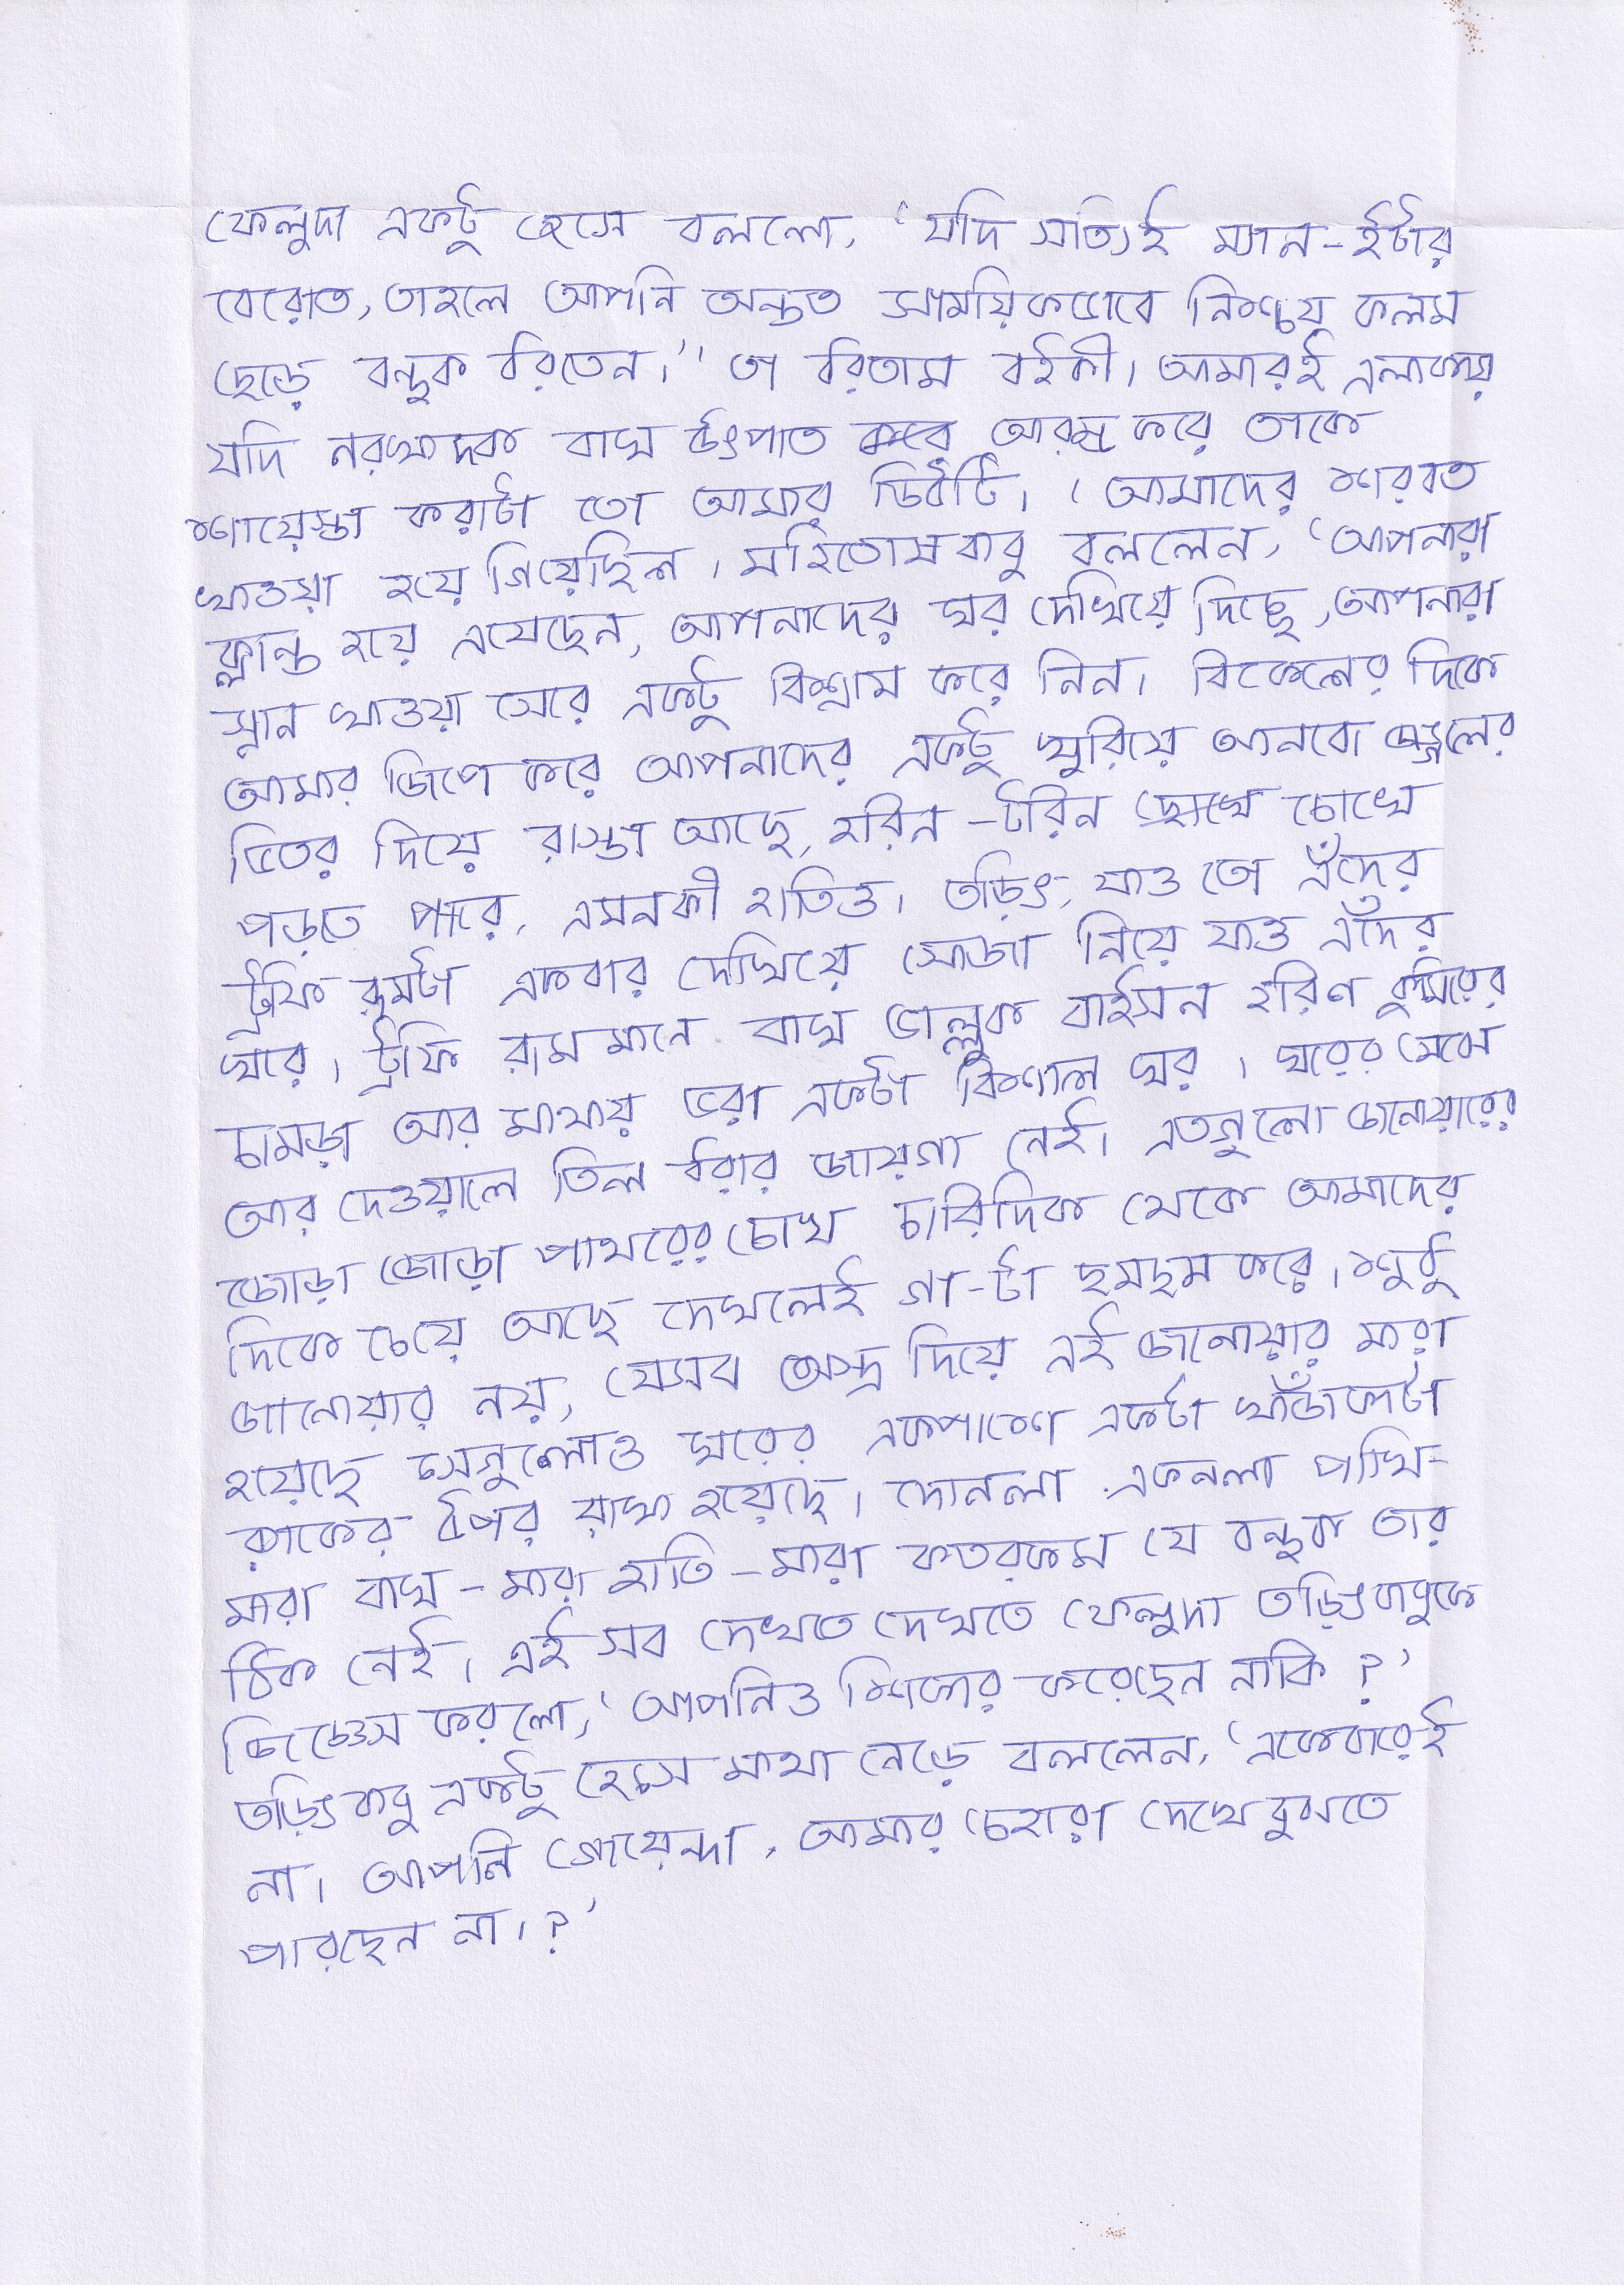 ফেলুদা একটু হেসে বললো, ‘যদি সত্যিই ম্যান-ইটার
বেরোত, তাহলে আপনি অন্তত সাময়িকভাবে নিশ্চয় কলম
ছেড়ে বন্দুক ধরিতেন।’ ‘তা ধরিতাম বইকী। আমারই এলাকায়
যদি নরখাদক বাঘ উৎপাত আরম্ভ করে তাকে
শায়েস্তা করাটা তো আমার ডিউটি। ‘আমাদের শরবত
খাওয়া হয়ে গিয়েছিল। মহিতোষবাবু বললেন, ‘আপনারা
ক্লান্ত হয়ে এসেছেন, আপনাদের ঘর দেখিয়ে দিচ্ছে, আপনারা
স্নান খাওয়া সেরে একটু বিশ্রাম করে নিন। বিকেলের দিকে
আমার জিপে করে আপনাদের একটু ঘুরিয়ে আনবো জঙ্গলের
ভিতর দিয়ে রাস্তা আছে, হরিন-টরিন চোখে
পড়তে পারে, এমনকী হাতিও। তড়িৎ, যাও তো এঁদের
ট্রফি রুমটা একবার দেখিয়ে সোজা নিয়ে যাও এঁদের
ঘরে। ট্রফি রুম মানে বাঘ ভাল্লুক বাইসন হরিণ কুমিরের
চামড়া আর মাথায় ভরা একটা বিশাল ঘর। ঘরের মেঝে
আর দেওয়ালে তিল ধরার জায়গা নেই। এতগুলো জানোয়ারের
জোড়া জোড়া পাথরের চোখ চারিদিক থেকে আমাদের
দিকে চেয়ে আছে দেখলেই গা-টা ছমছম করে। শুধু
জানোয়ার নয়, যেসব অস্ত্র দিয়ে এই জানোয়ার মারা
হয়েছে সেগুলোও ঘরের একপাশে একটা খাঁজকাটা
র‍্যাকের উপর রাখা হয়েছে। দোনলা একনলা পাখি-
মারা বাঘ-মারা হাতি-মারা কতরকম যে বন্দুক তার
ঠিক নেই। এই সব দেখতে দেখতে ফেলুদা তড়িৎবাবুকে
জিজ্ঞেস করলো, ‘আপনিও শিকার করেছেন নাকি ?’
তড়িৎবাবু একটু হেসে মাথা নেড়ে বললেন, ‘একেবারেই
না। আপনি গোয়েন্দা, আমার চেহারা দেখে বুঝতে
পারছেন না। ?’